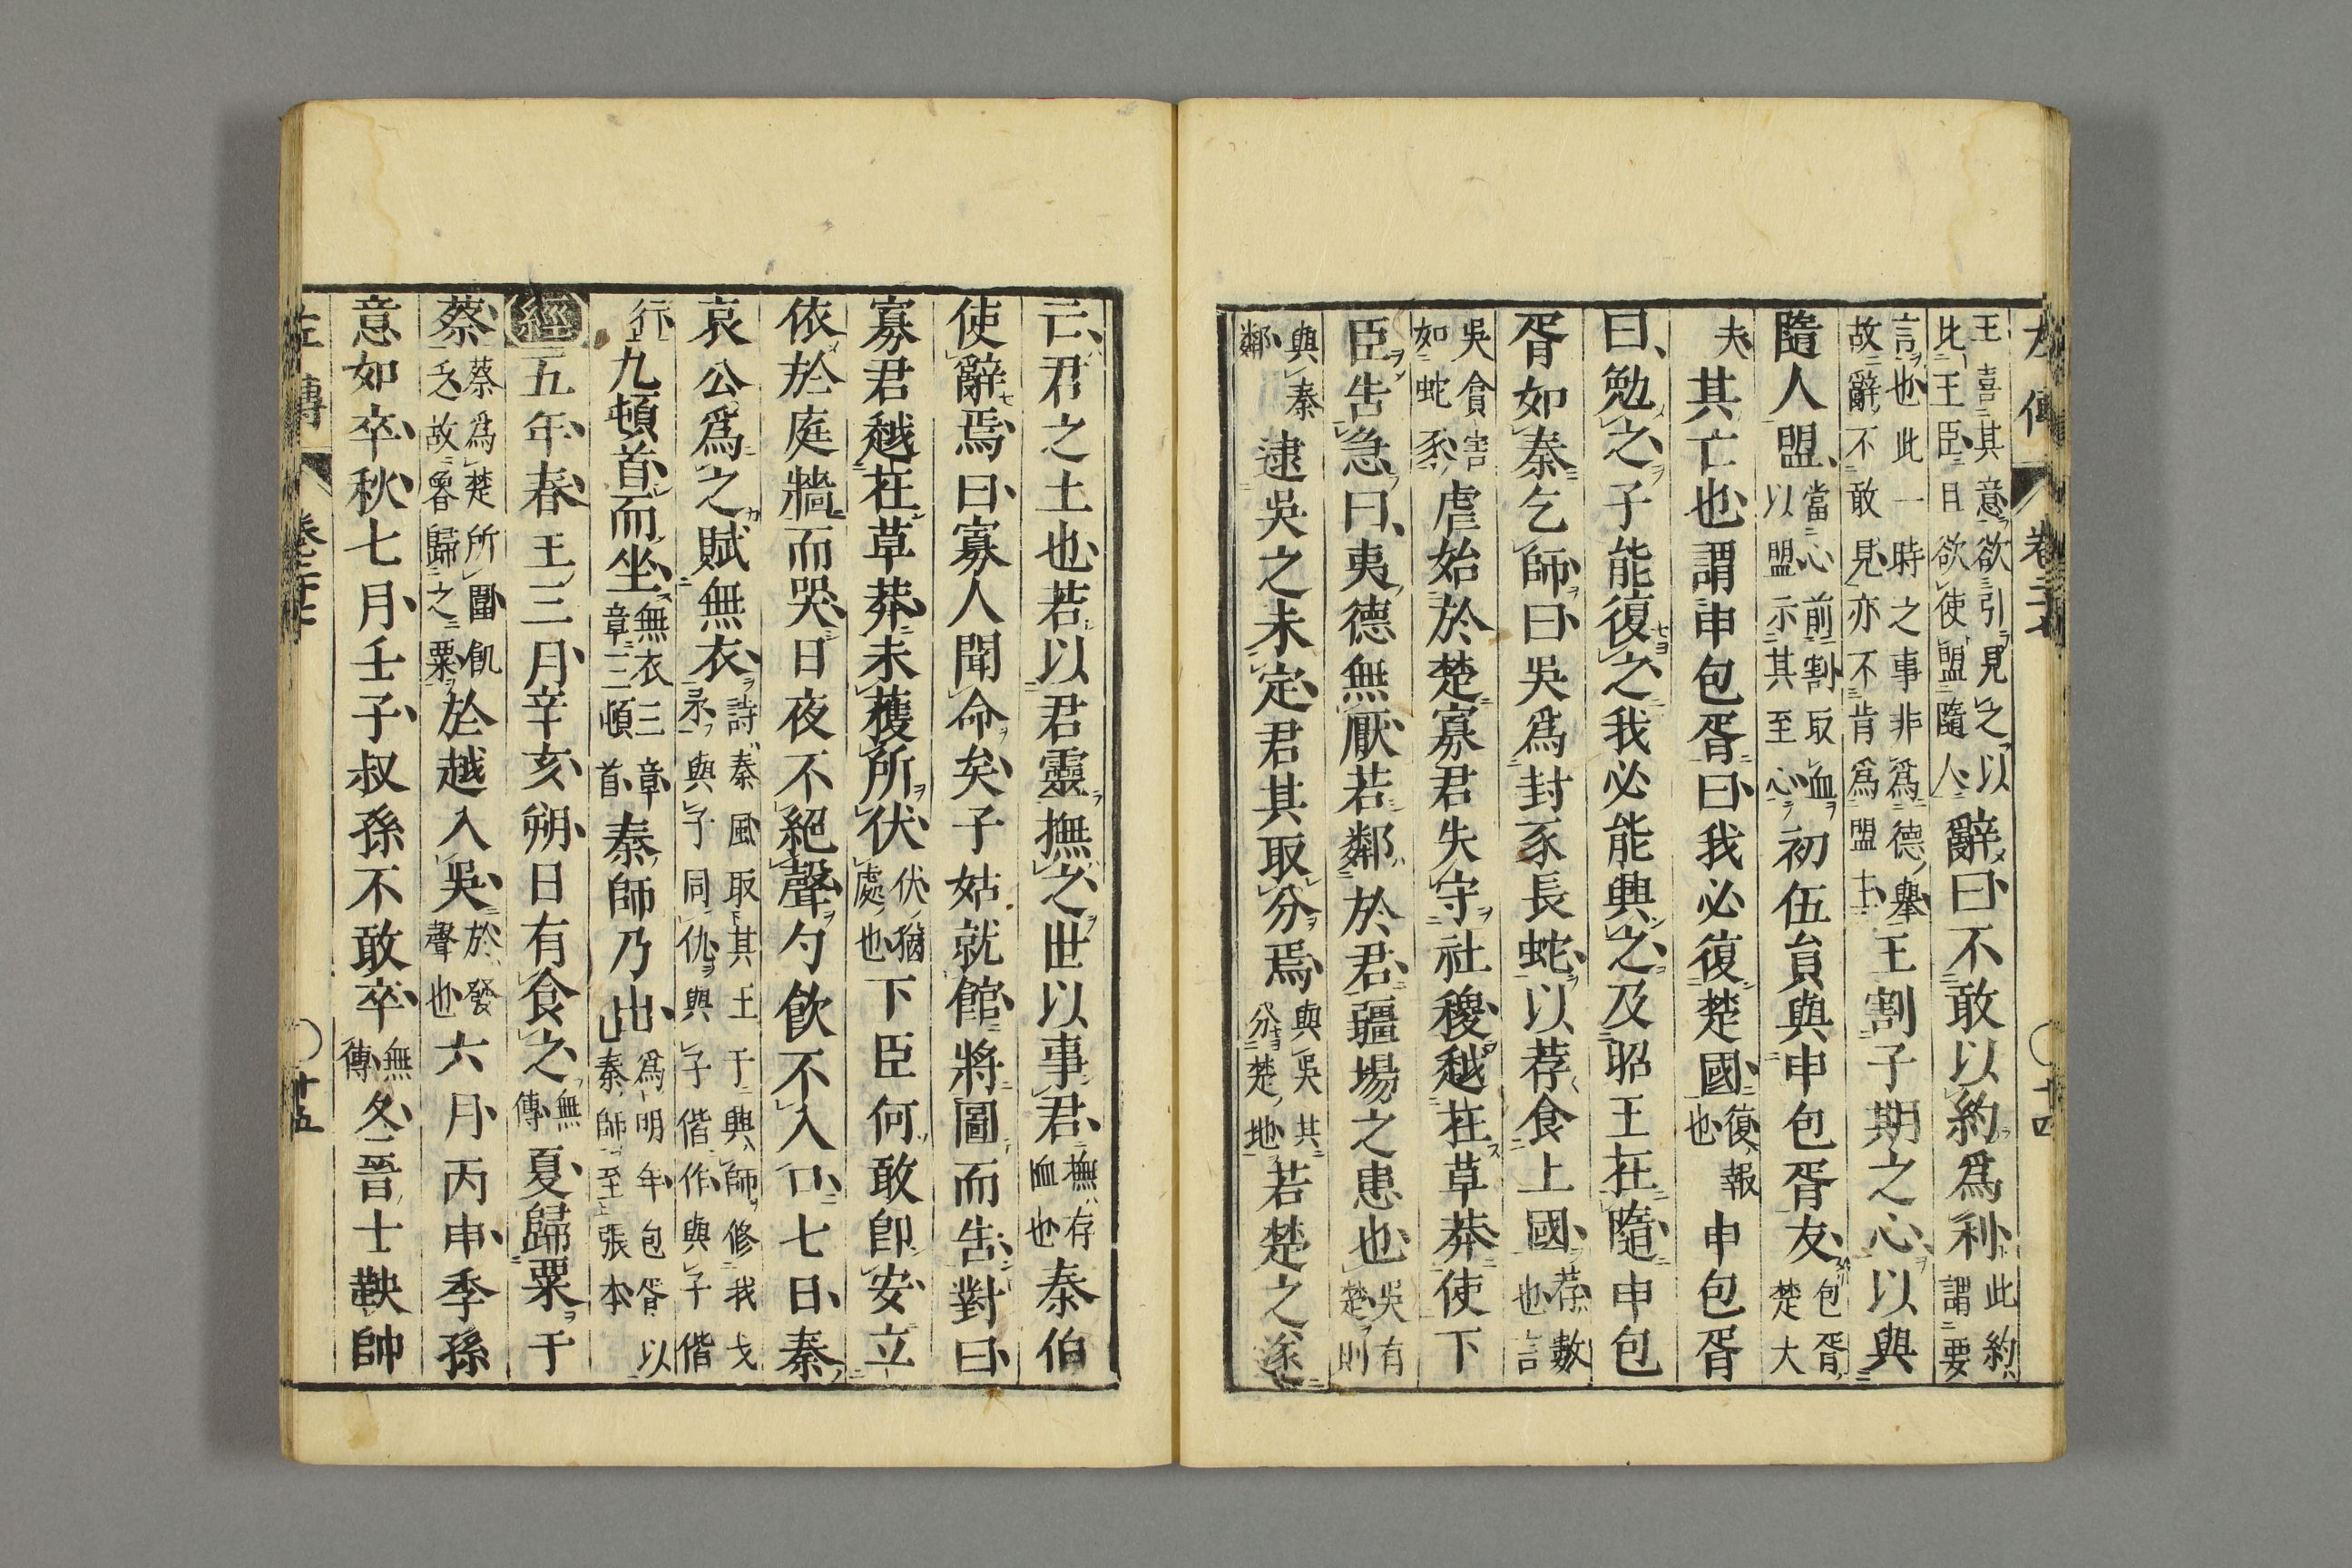 左傳 卷二十七 十四
王喜其意欲引見之以比王臣且欲使盟隨人辭曰不敢以約爲利此約謂要
言也此一時之事非爲德舉故辭不敢見亦不肯爲盟主王割子期之心以與
隨人盟當心前割取血以盟示其至心初伍員與申包胥友包胥楚大
夫其亡也謂申包胥曰我必復楚國復報也申包胥
曰勉之子能復之我必能興之及昭王在隨申包
胥如秦乞師曰吳爲封豕長蛇以荐食上國荐數也言
吳貪害如蛇豕虐始於楚寡君失守社稷越在草莽使下
臣告急曰夷德無厭若鄰於君疆埸之患也吳有楚則
與秦鄰逮吳之未定君其取分焉與吳共分楚地若楚之遂
亡君之土也若以君靈撫之世以事君撫存恤也秦伯
使辭焉曰寡人聞命矣子姑就館將圖而告對曰
寡君越在草莽未獲所伏伏猶處也下臣何敢卽安立
依於庭牆而哭日夜不絕聲勺飲不入口七日秦
哀公爲之賦無衣詩秦風取其王于興師修我戈矛與子同仇與子偕作與子偕
行九頓首而坐無衣三章章三頓首秦師乃出爲明年包胥以秦師至張本
經五年春王三月辛亥朔日有食之無傳夏歸粟于
蔡蔡爲楚所圍飢乏故魯歸之粟於越入吳於發聲也六月丙申季孫
意如卒秋七月壬子叔孫不敢卒無傳冬晉士鞅帥
左傳 卷二十七 十五